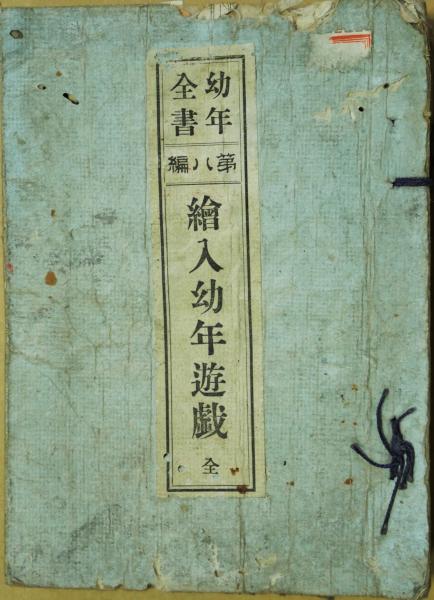 幼年全書
第八編
繪入幼年遊戯
全